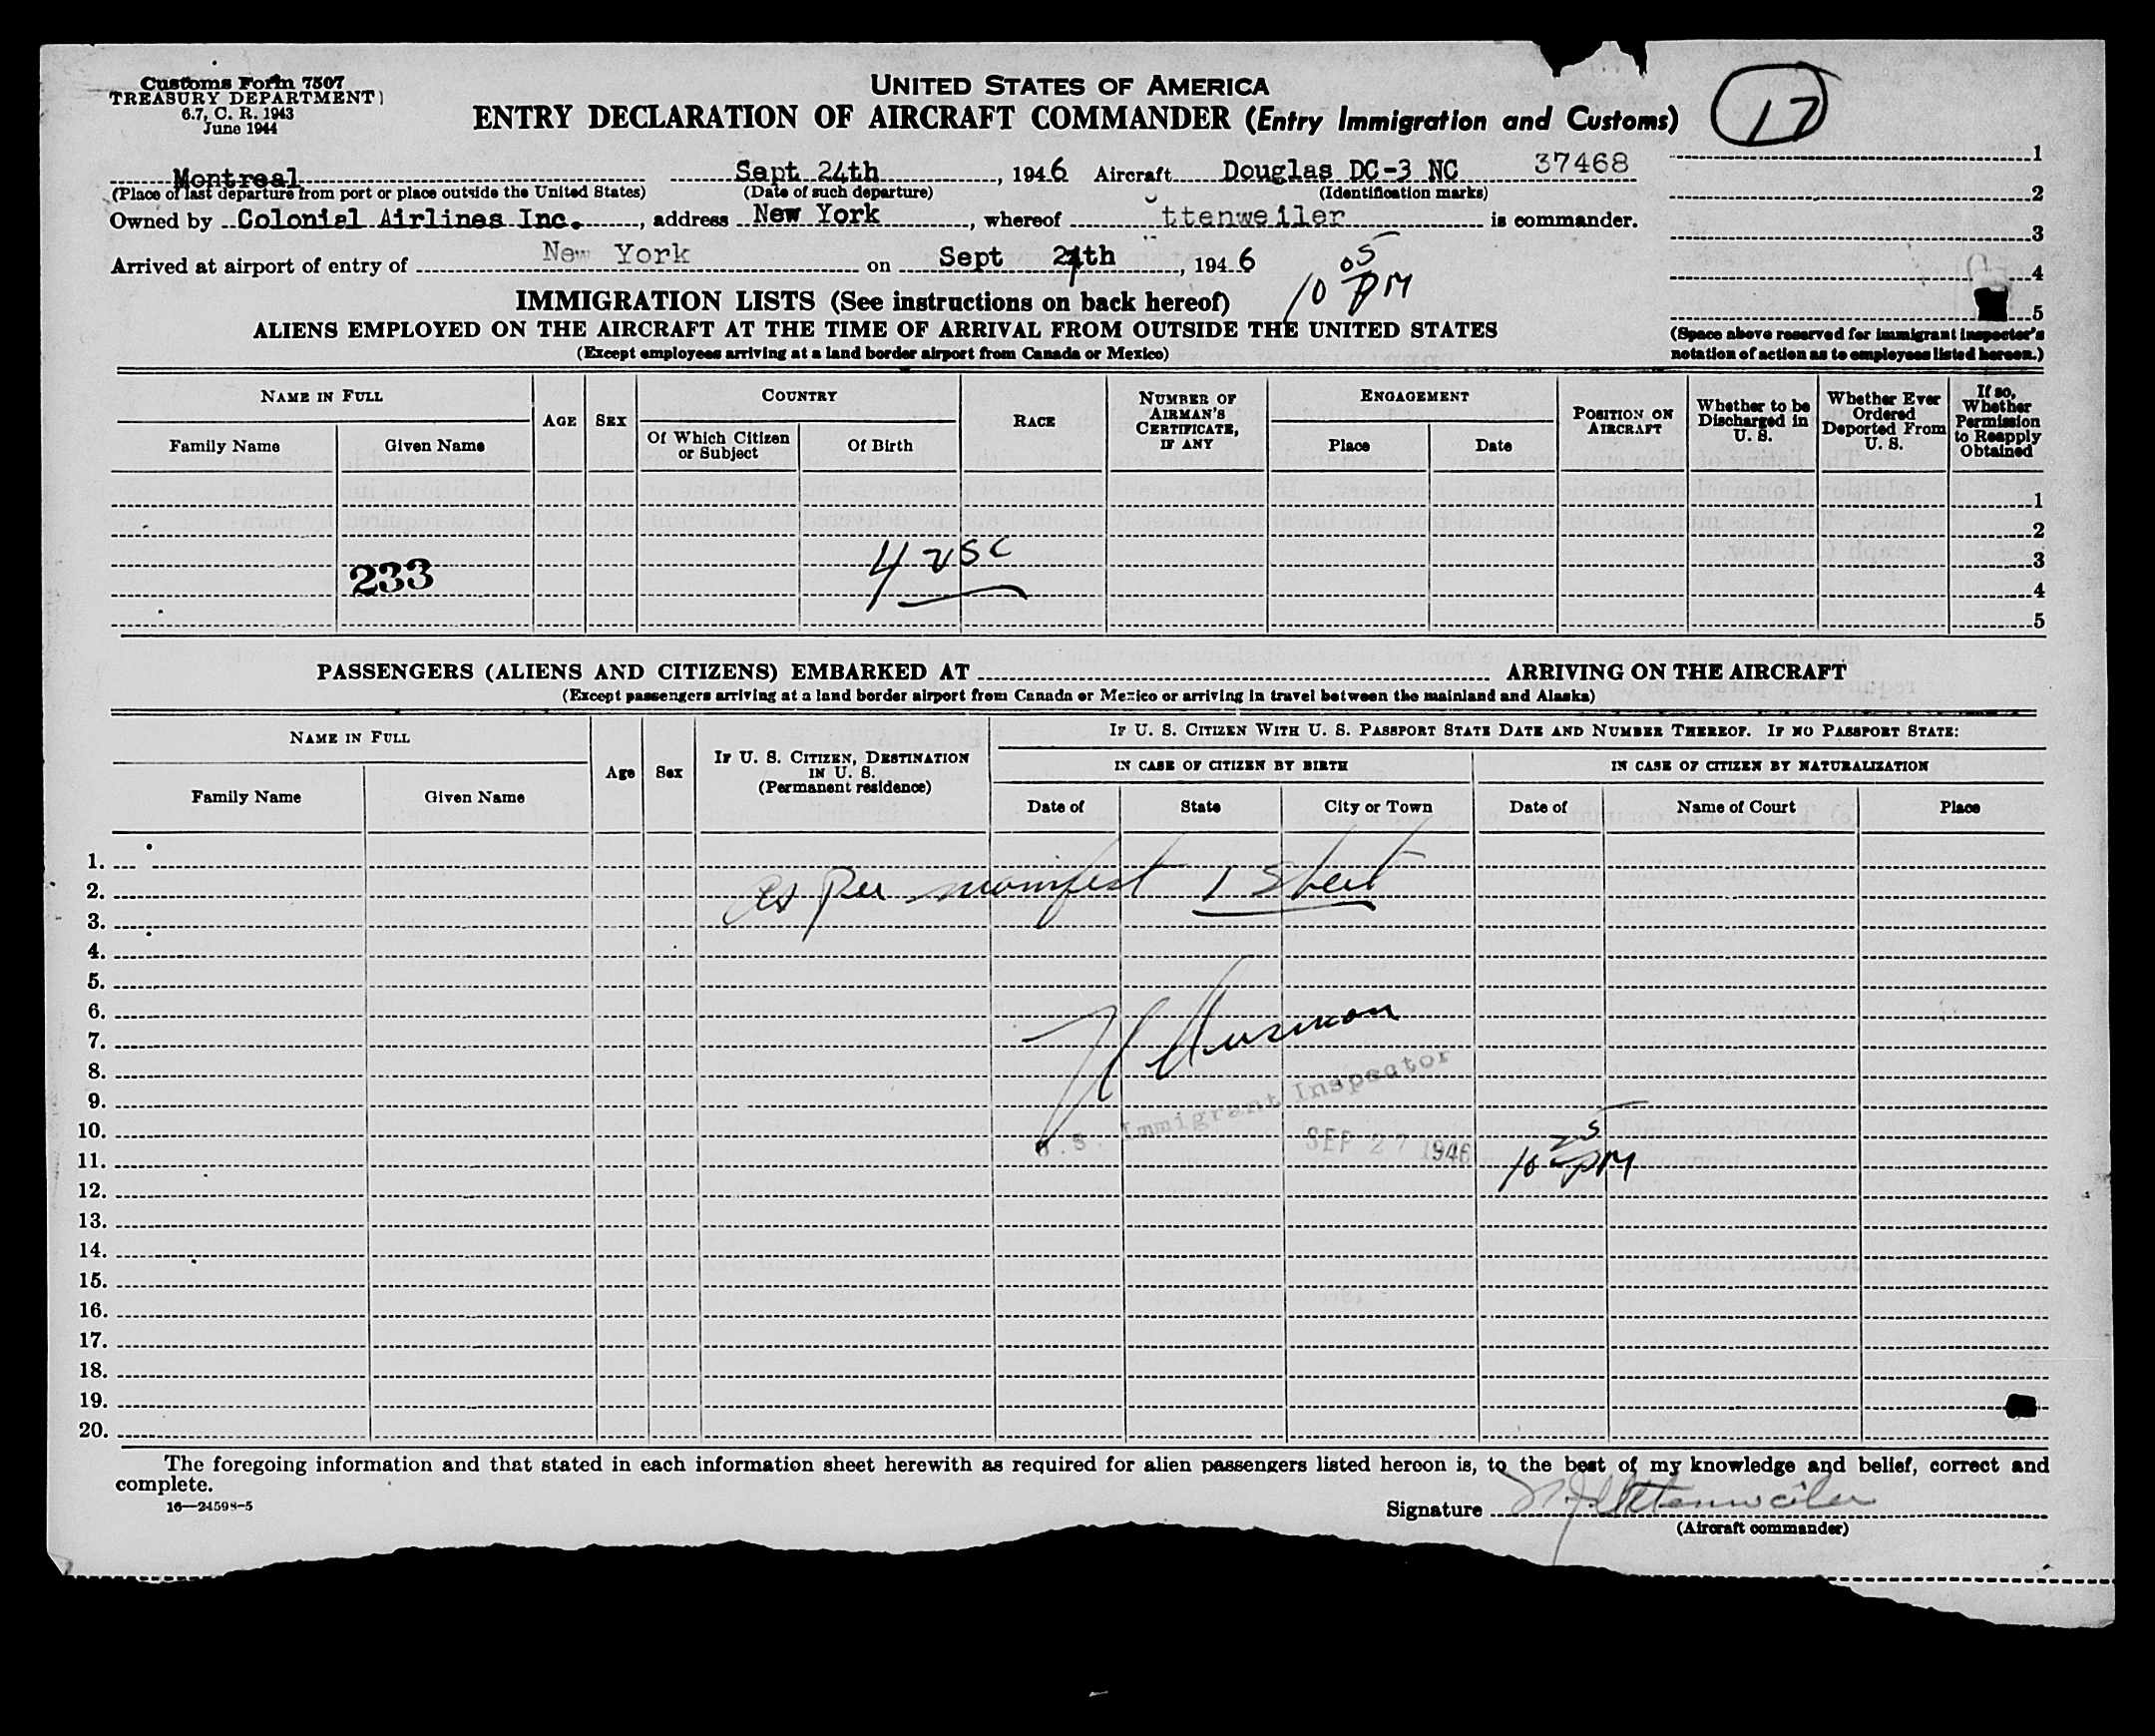 Customs Form 7507
TREASURY DEPARTMENT)
6.7, C. R. 1943
June 1944
UNITED STATES OF AMERICA
ENTRY DECLARATION OF AIRCRAFT COMMANDER (Entry Immigration and Customs)
17
Montreal Sept 24th, 1946 Aircraft Douglas DC-3 NC 37468
(Place of last departure from port or place outside the United States) (Date of such departure) (Identification marks)
Owned by Colonial Airlines Inc., address New York, whereof ttenweiler is commander.
Arrived at airport of entry of New York on Sept th, 1946
10 05 PM
1
2
3
4
5
(Space above reserved for immigrant inspector's
notation of action as to employees listed hereon.)
IMMIGRATION LISTS (See instructions on back hereof)
ALIENS EMPLOYED ON THE AIRCRAFT AT THE TIME OF ARRIVAL FROM OUTSIDE THE UNITED STATES
(Except employees arriving at a land border airport from Canada or Mexico)
NAME IN FULL
Family Name Given Name
AGE SEX
COUNTRY
Of Which Citizen or Subject Of Birth
RACE
NUMBER OF AIRMAN'S CERTIFICATE, IF ANY
ENGAGEMENT
Place Date
POSITION ON AIRCRAFT
Whether to be Discharged in U. S.
Whether Ever Ordered Deported From U. S.
If so, Whether Permission to Reapply Obtained
1
2
4 USC 3
233 4
5
PASSENGERS (ALIENS AND CITIZENS) EMBARKED AT ARRIVING ON THE AIRCRAFT
(Except passengers arriving at a land border airport from Canada or Mexico or arriving in travel between the mainland and Alaska)
NAME IN FULL
Family Name Given Name
Age Sex
IF U. S. CITIZEN, DESTINATION IN U. S. (Permanent residence)
IF U. S. CITIZEN WITH U. S. PASSPORT STATE DATE AND NUMBER THEREOF. IF NO PASSPORT STATE:
IN CASE OF CITIZEN BY BIRTH IN CASE OF CITIZEN BY NATURALIZATION
Date of State City or Town Date of Name of Court Place
1.
2. as per manifest 1 sheet
3.
4.
5.
6.
7.
8.
9.
10. U.S. Immigrant Inspector
11. SEP 27 1946 10 25 PM
12.
13.
14.
15.
16.
17.
18.
19.
20.
The foregoing information and that stated in each information sheet herewith as required for alien passengers listed hereon is, to the best of my knowledge and belief, correct and
complete.
16—24598-5
Signature
(Aircraft commander)